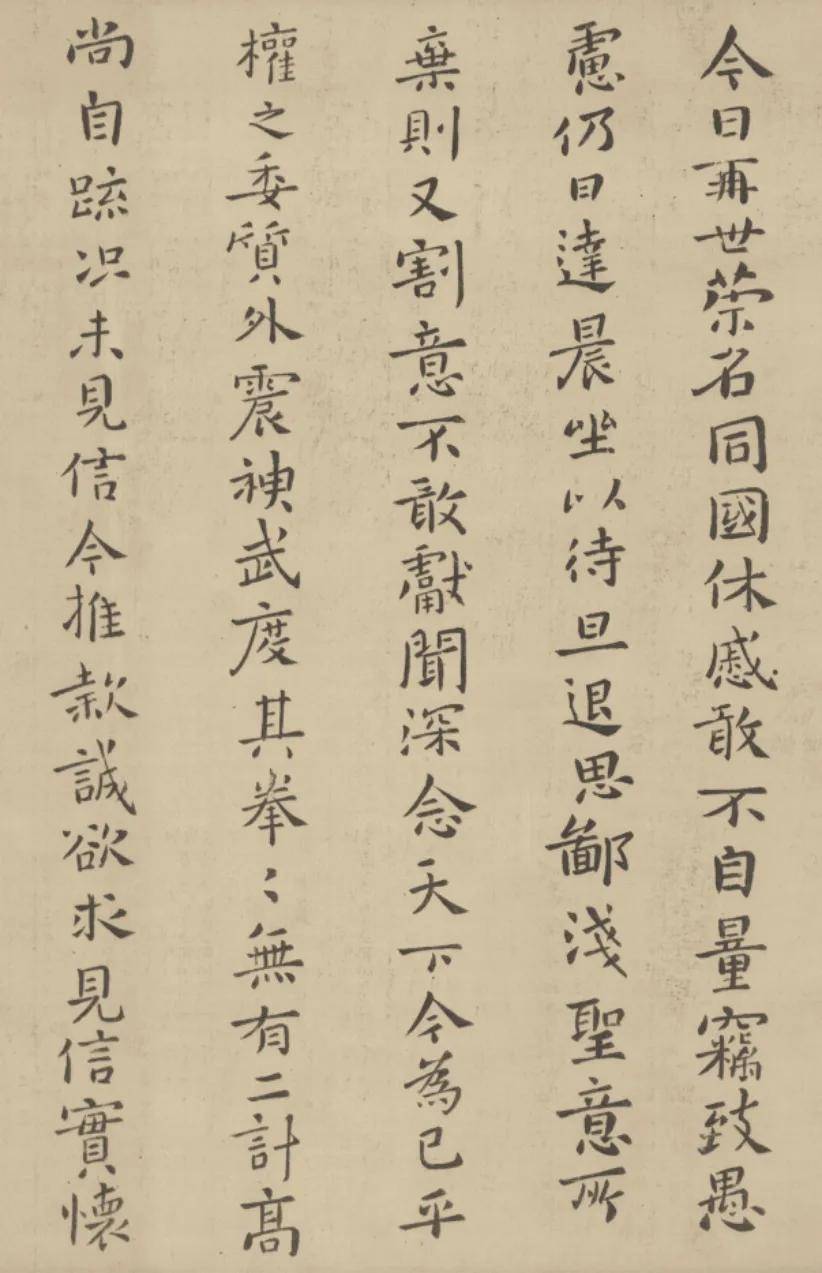 今日再世荣名同國休慼敢不自量竊致愚
慮仍日達晨坐以待旦退思鄙淺聖意所
棄則又割意不敢獻聞深念天下今為已平
權之委質外震神武度其拳〻無有二計高
尚自踈况未見信今推款誠欲求見信實懷